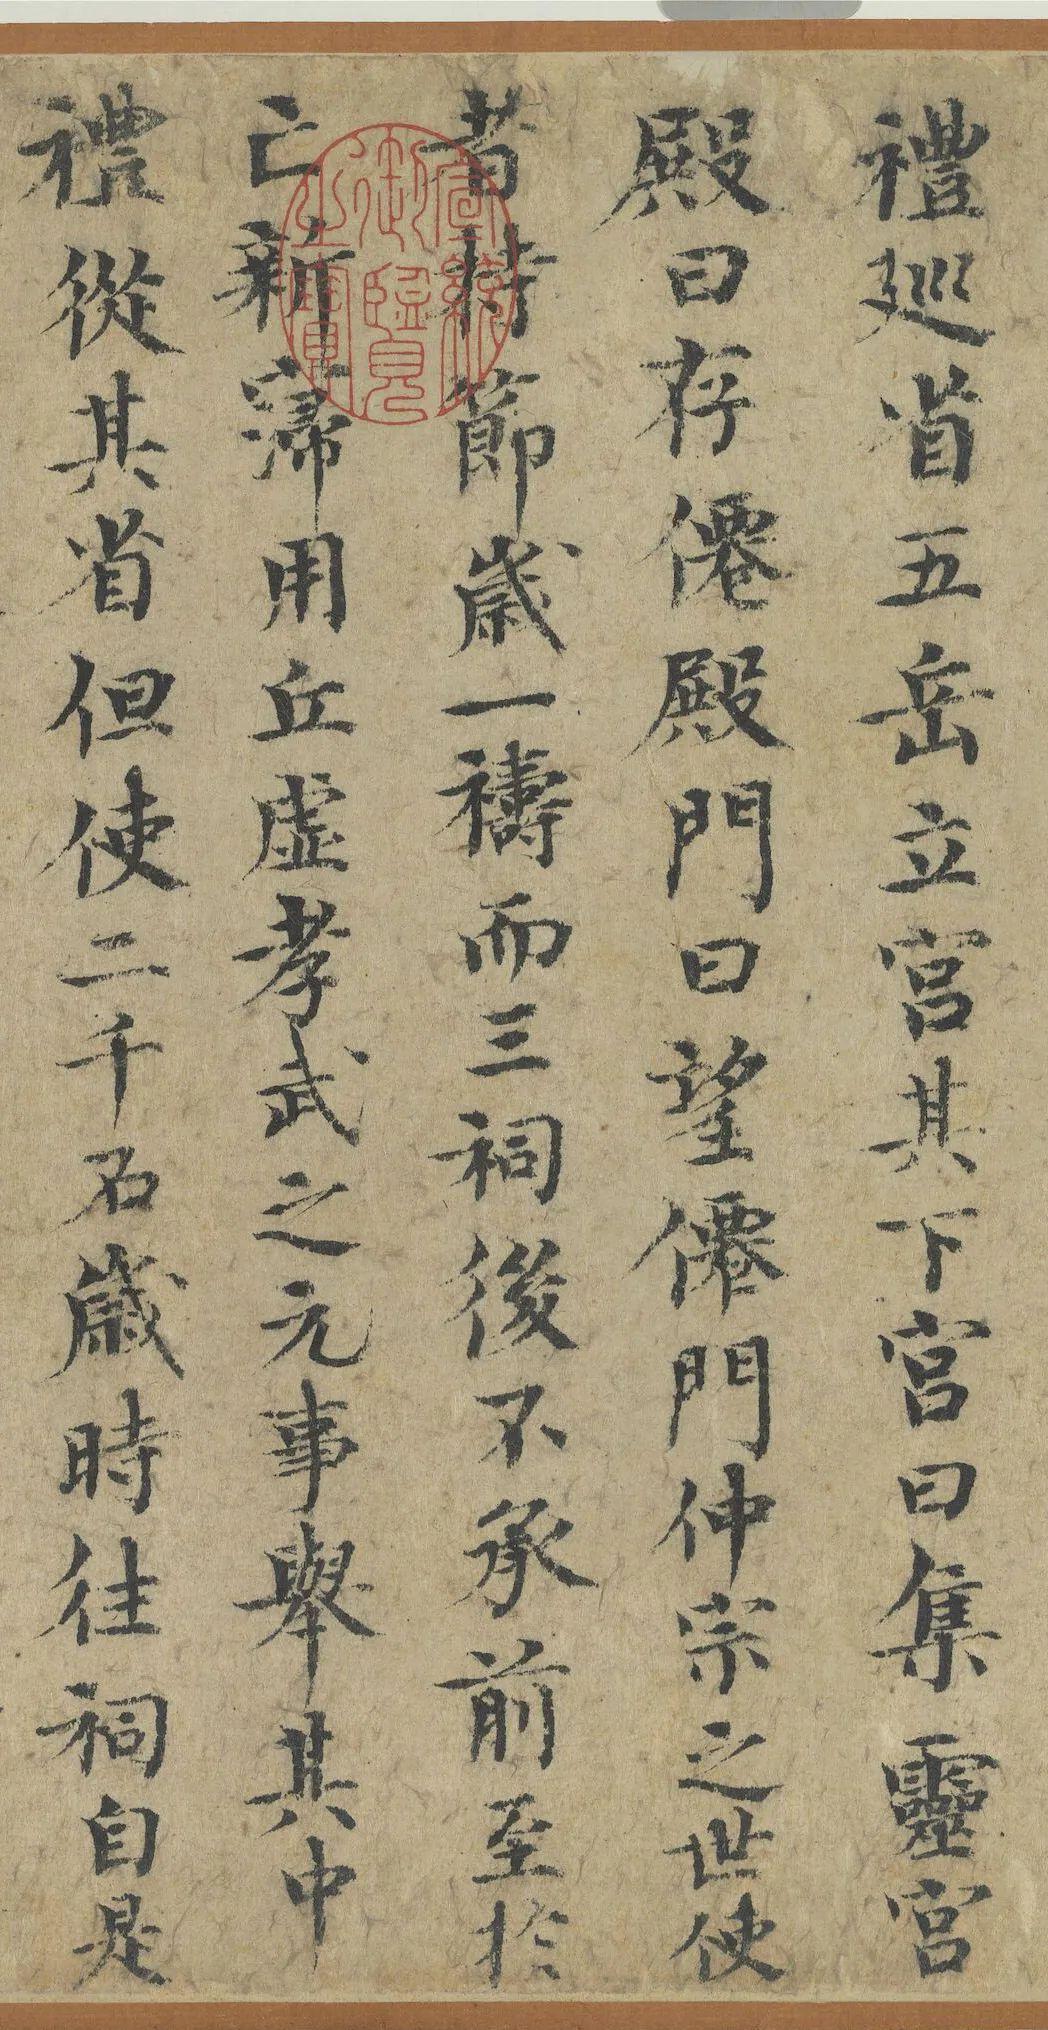 禮廵省五岳立宫其下宫曰集靈宫
殿曰存僊殿殿門曰望僊門仲宗之世使
者持節歲一禱而三祠後不承前至於
亡新寖用丘虚孝武之元事舉其中
禮從其省但使二千石歲時往祠自是
宣統御覽之寶